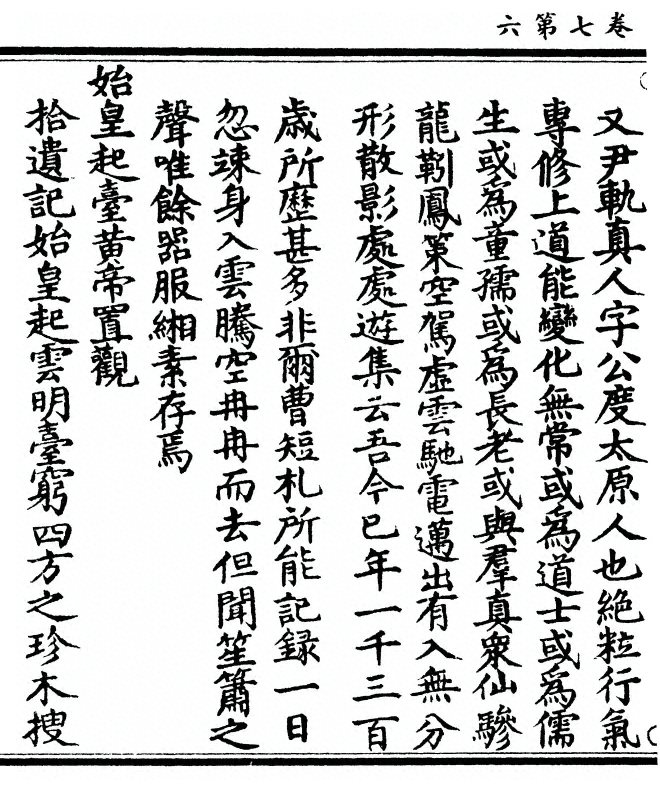 卷七第六
又尹軌真人字公度太原人也絕粒行氣
專修上道能變化無常或為道士或為儒
生或為童孺或為長老或與羣真衆仙驂
龍靷鳳策空駕虛雲馳電邁出有入無分
形散影處處遊集云吾今已年一千三百
歲所歷甚多非爾曹短札所能記録一日
忽竦身入雲騰空冉冉而去但聞笙簫之
聲唯餘器服緗素存焉
始皇起臺黃帝置觀
拾遺記始皇起雲明臺窮四方之珍木搜